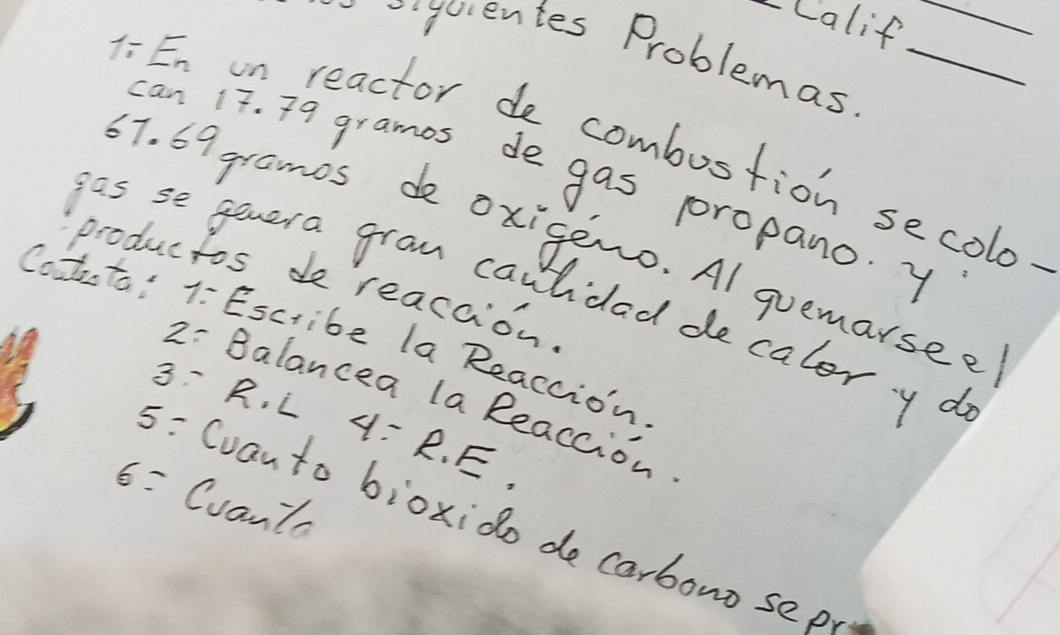 siguientes Problemas.
Calif
1:- En un reactor de combustión se colo-
can 17.79 gramos de gas propano. y
67.69 gramos de oxigeno. Al quemarse el
gas se genera gran cantidad de calor y do
productos de reacción.
Contesta: 1:- Escribe la Reacción.
2:- Balancea la Reacción.
3:- R.L 4:- R.E.
5:- Cuanto bioxido de carbono se pr
6:- Cuanta